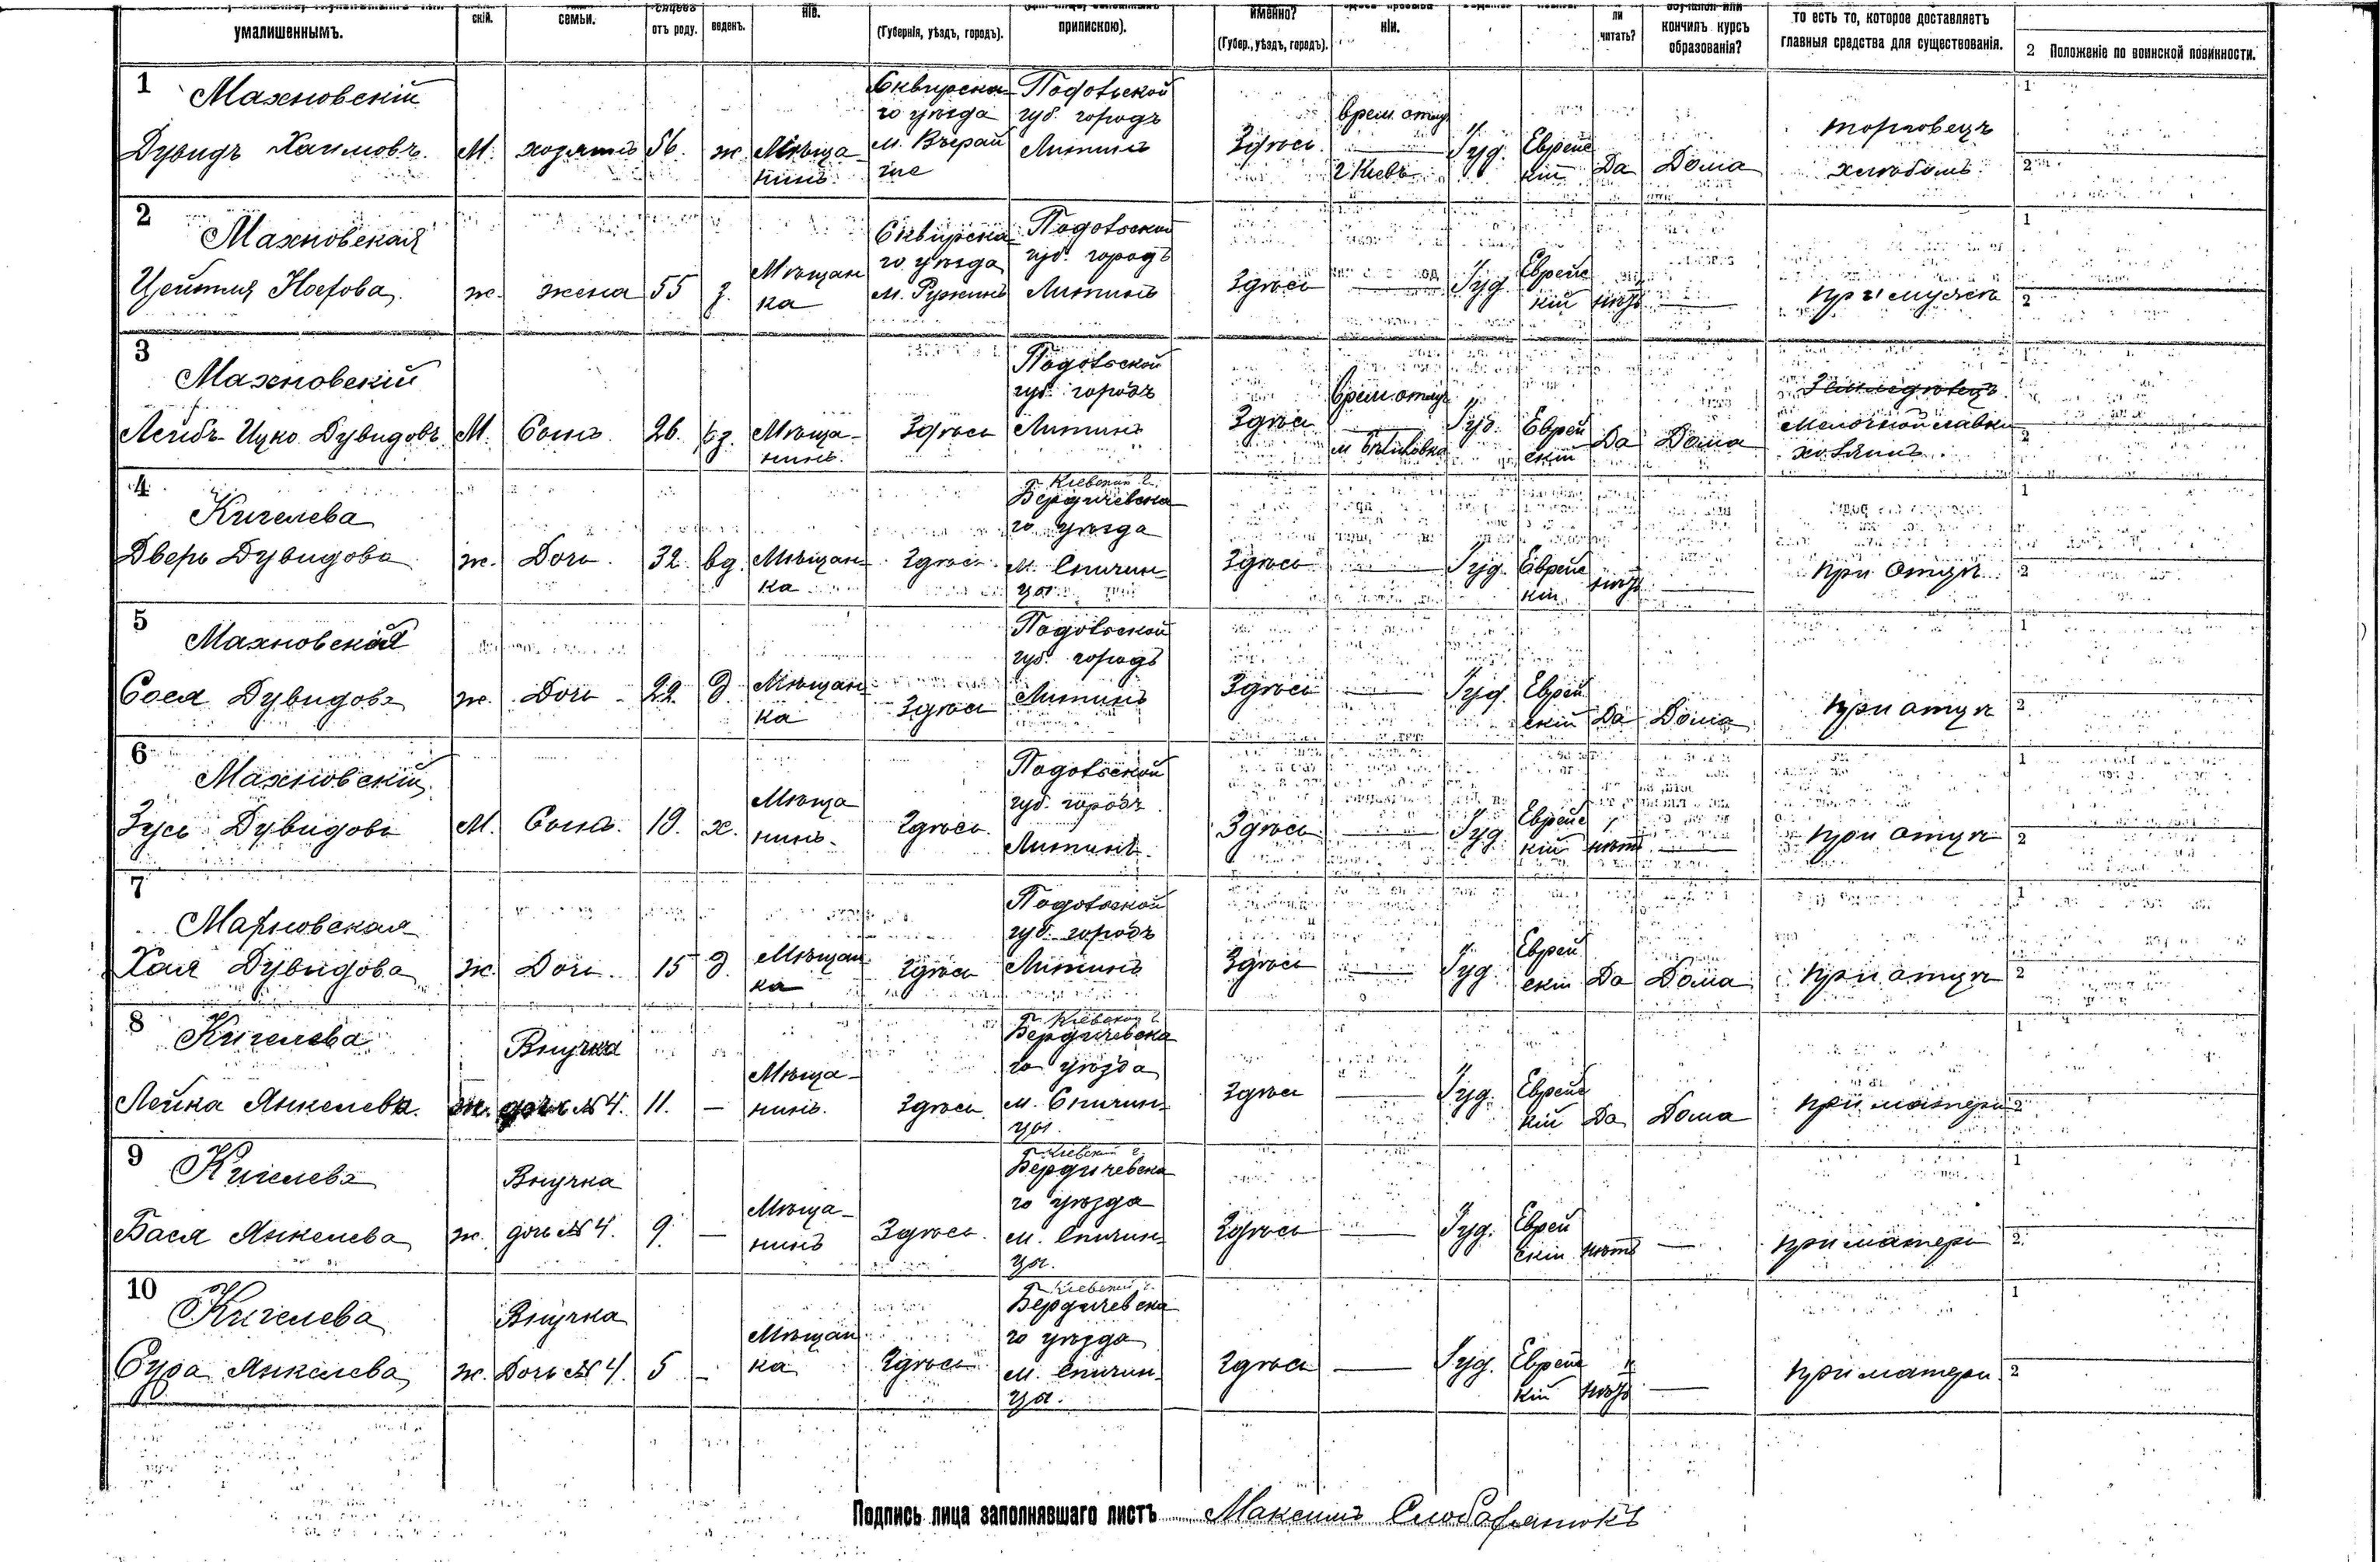 умалишеннымъ.
скій.
семьи.
отъ роду.
веденъ.
ніе.
(Губернія, уѣздъ, городъ).
припискою).
именно?
(Губер., уѣздъ, городъ).
ніи.
ли
читать?
кончилъ курсъ
образованія?
то есть то, которое доставляетъ
главныя средства для существованія.
2 Положеніе по воинской повинности.
1
Махновскій
Дувидъ Хаимовъ
М. хозяинъ 56. ж. Мѣща-
нинъ
Сквирска-
го уѣзда
м. Вчерай
ше
Подольской
губ. городъ
Литинъ
Здѣсь
врем. отлуч
г Кіевъ
Іуд. Еврейс
кій
Да Дома
торговецъ
хлѣбомъ
1
2
2
Махновская
Цейтля Носова
ж. жена 55 з. Мѣщан
ка
Сквирска-
го уѣзда
м. Ружинъ
Подольской
губ. городъ
Литинъ
Здѣсь — Іуд. Еврейс
кій
нѣтъ —
при мужѣ
1
2
3
Махновскій
Лейбъ-Ицко Дувидовъ
М. Сынъ. 26. Мѣща-
нинъ.
Здѣсь
Подольской
губ. городъ
Литинъ
Здѣсь
врем. отлуч
м Бѣлиловка
Іуд. Еврей
скій
Да Дома
Земледѣлецъ
Мелочной лавки
хозяинъ.
2
4
Кигелева
Дверь Дувидова
ж. Дочь. 32. вд. Мѣщан-
ка
Здѣсь.
Кіевской г.
Бердичевска
го уѣзда
м. Спичин-
цы
Здѣсь — Іуд. Еврейс
кій
нѣтъ —
при Отцѣ
1
2
5
Махновская
Сося Дувидова
ж. Дочь - 22. д. Мѣщан-
ка
Здѣсь
Подольской
губ. городъ
Литинъ
Здѣсь — Іуд. Еврей
скій
Да Дома
при отцѣ
1
2
6
Махновскій
Зусь Дувидовъ
М. Сынъ. 19. х. Мѣща
нинъ.
Здѣсь.
Подольской
губ. городъ
Литинъ.
Здѣсь — Іуд. Еврейс
кій
нѣтъ —
при отцѣ
1
2
7
Махновская
Хая Дувидова
ж. Дочь. 15 д. Мѣщан
ка
Здѣсь
Подольской
губ. городъ
Литинъ
Здѣсь — Іуд. Еврей
скій
Да Дома
при отцѣ
1
2
8
Кигелева
Лейка Янкелева.
ж. Внучка
дочь №4. 11. — Мѣща-
нинъ.
Здѣсь
Кіевской г.
Бердичевска
го уѣзда
м. Спичин-
цы.
Здѣсь — Іуд. Еврейс
кій
Да Дома
при матери
1
2
9
Кигелева
Бася Янкелева
ж. Внучка
дочь №4. 9. — Мѣща-
нинъ
Здѣсь.
Кіевской г.
Бердичевска
го уѣзда
м. Спичин-
цы.
Здѣсь — Іуд. Еврей
скій
нѣтъ —
при матери
1
2
10
Кигелева
Сура Янкелева
ж. Внучка
Дочь №4. 5 — Мѣщан
ка
Здѣсь
Кіевской г.
Бердичевска
го уѣзда
м. Спичин-
цы.
Здѣсь — Іуд. Еврейс
кій
нѣтъ —
при матери
1
2
Подпись лица заполнявшаго листъ Максимъ Слободянюкъ